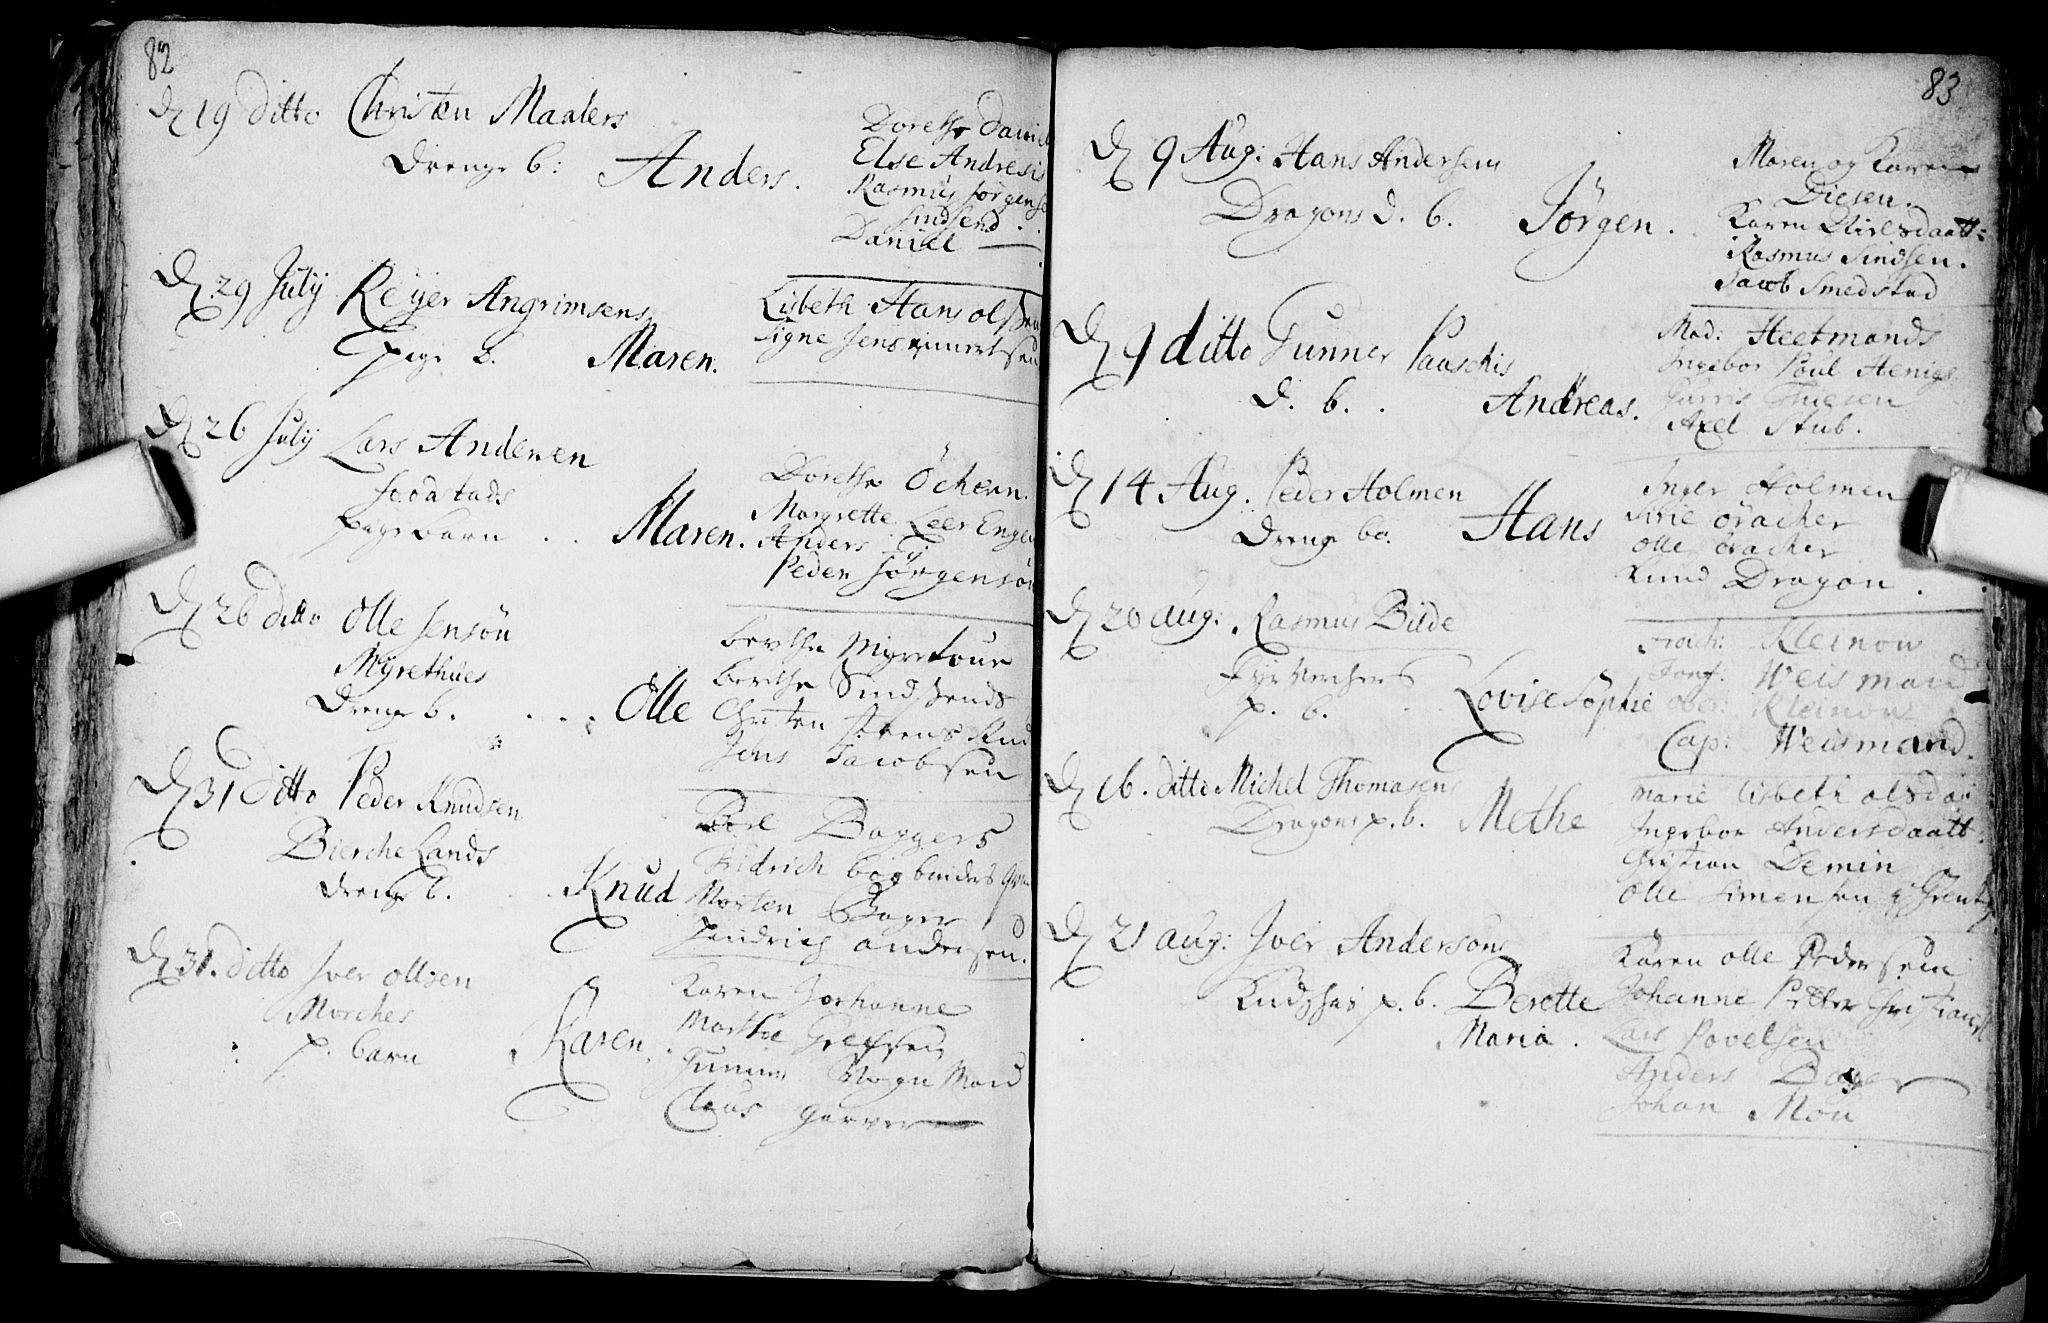 82
D 19 ditto Christen Maalers
Drenge b: Anders.
Dorethe Daniels
Else Andresis
Rasmus Jörgense
Sindsend
Daniel
D 29 July Reÿer Angrimsens
Pige b. Maren.
Lisbeth Hans olsen
Signe Jens
D 26 July Lars Andersen
Pige barn .. Maren.
Dorethe Öchern.
Margrette Leer Enge
Anders
Peder Jörgensön
D 26 ditto Olle Jensön
Myrethues
Drenge b. . . . Olle
berthe
berthe Sindsends
Christen
Jens Jacobsen
D 31 ditto Peder Knudsen
Bierche Lands
drenge b. Knud
Baggers
Fridrich bogbinders
Morten Bager
Hendrich andersen.
D 31. ditto Iver ollsen
Morches
p. barn Karen.
Karen Johanne
Marthe
Gunner Vogn Mand
Claus garver
83
D 9 Aug: Hans Andersens
Dragons d. b. Jörgen.
Maren og Karen
Diesen.
Karen Nielsdaatt:
Rasmus Sindsen.
Jacob Smedstad
D 9 ditto Gunner Pauschis
d. b. . Andreas.
Mad: Heetmands
Ingebor Poul
Thuesen
Axel Stub.
D 14 Aug. Peder Holmen
Drenge ba. Hans
Inger Holmen
Sirie öracher
Olle öracher
Knud Dragon.
D 20 aug: Rasmus Bilde
Fÿrverchers
p. b. Lovise Sophie
Kleinow
Jomf: Weismand
Ober: Kleinow
Cap: Weismand.
D 16. ditto Michel Thomasens
Dragons p. b. Methe
Marie Lisbeth olsda
Ingebor Andersdaatt.
Christian Demin
Olle Simensen
D 21 aug: Iver Andersons
p. b. Berette
Maria.
Karen olle Pedersen
Johanne Petter
Lars Povelsen
Anders Bager
Johan Mou